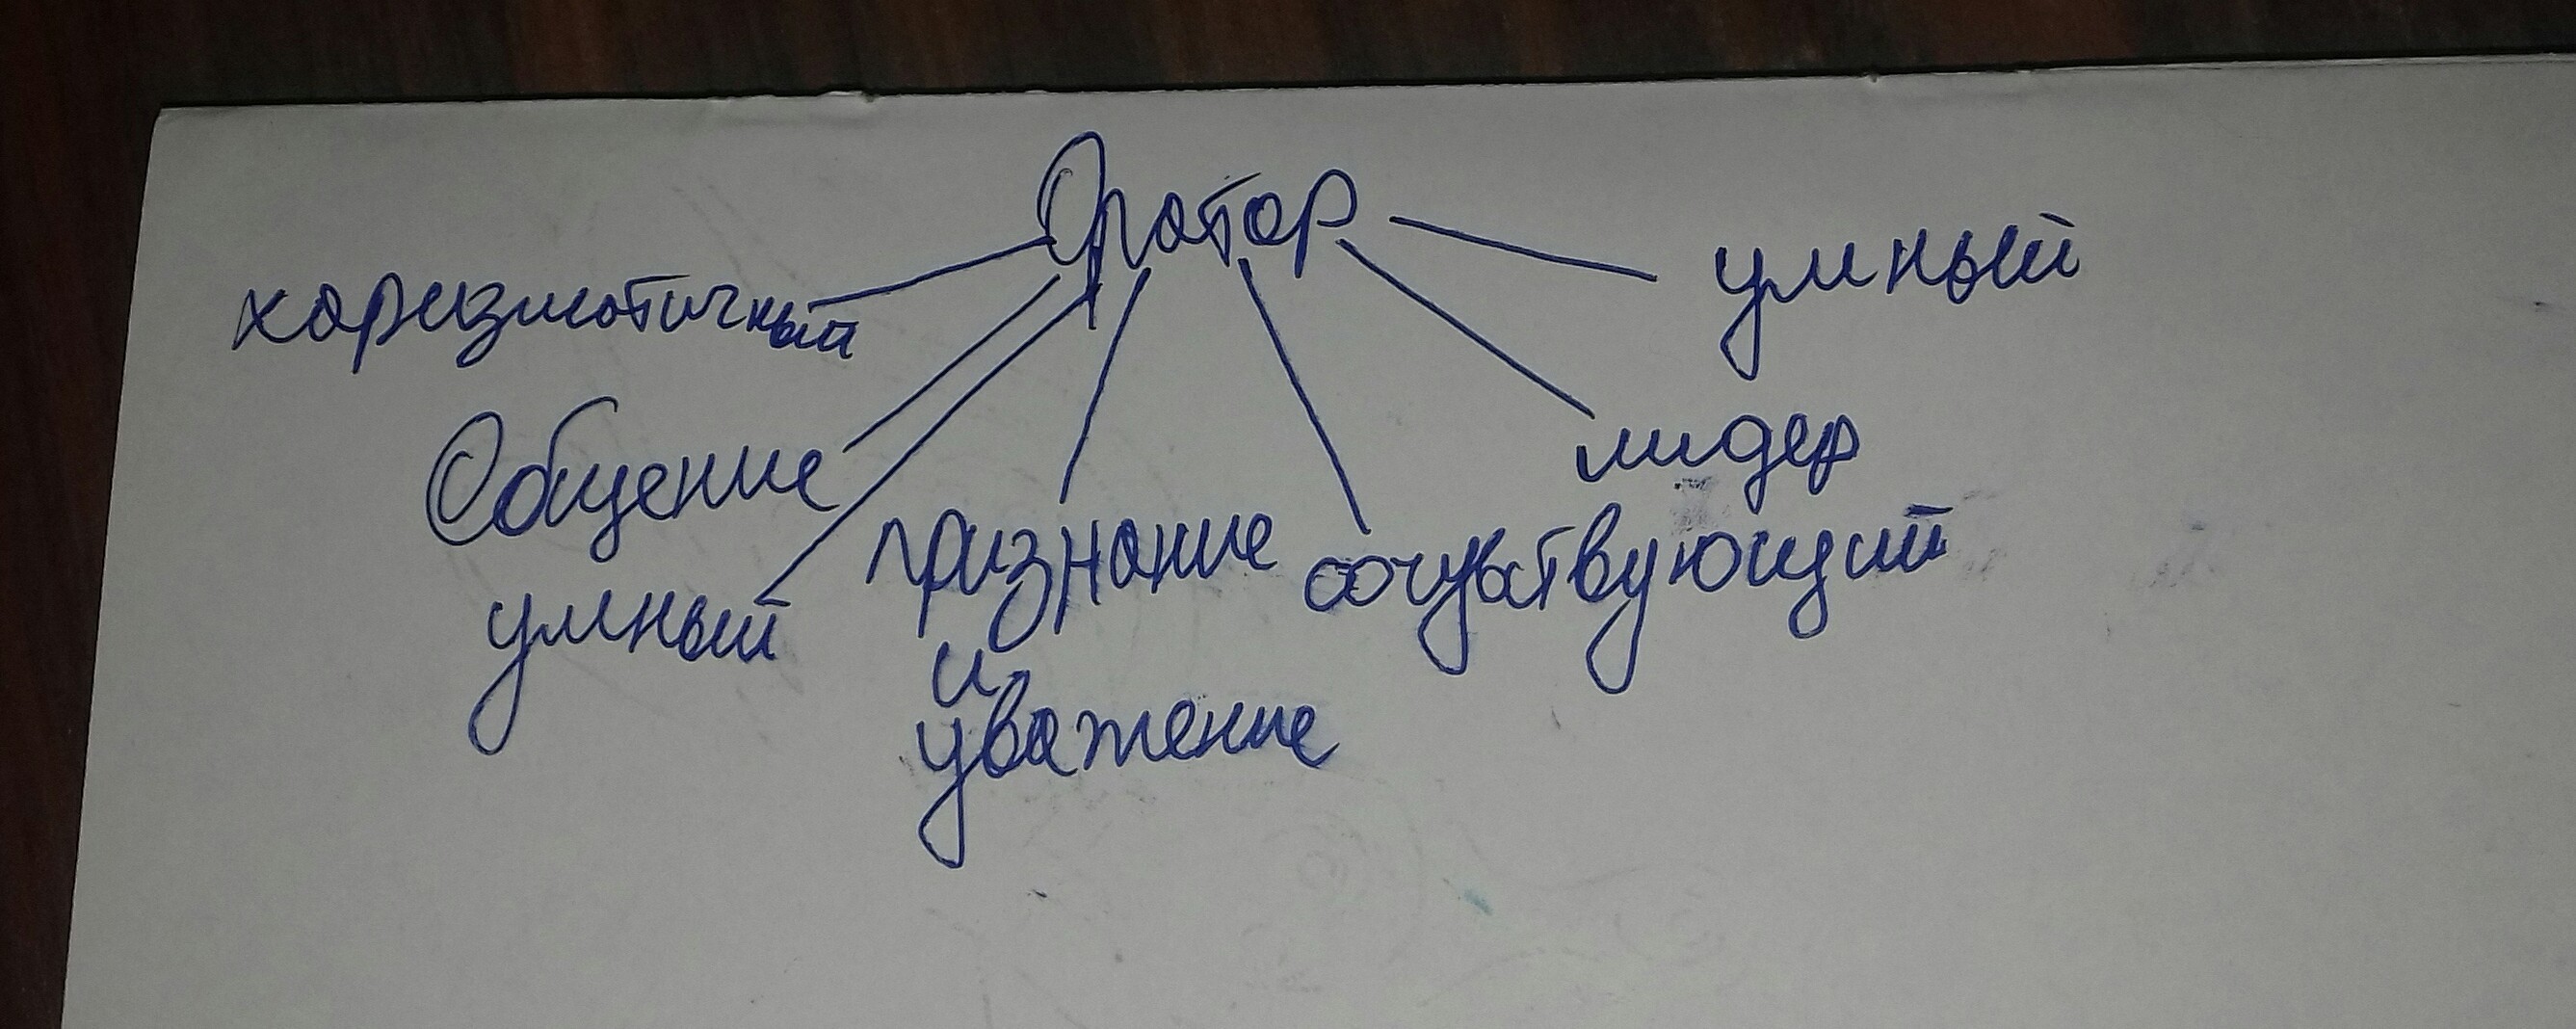 Оратор
харизматичный
умный
Общение
лидер
умный
признание
сочувствующий
и
уважение